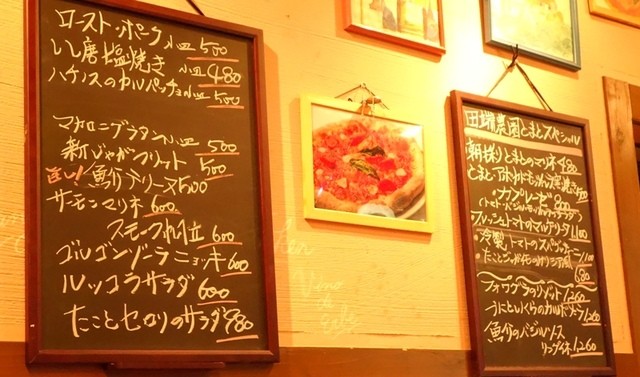 ロースト・ポーク小皿 500
いし磨塩焼き 小皿 480
ハチノスのカルパッチョ小皿 500
マカロニグラタン小皿 500
新じゃがフリット 500
旨い!魚介テリーヌ 500
サーモンマリネ 600
スモーク帆立 600
ゴルゴンゾーラニョッキ 600
ルッコラサラダ 600
たことセロリのサラダ 780
田端農園とまとスペシャル
朝採りとまとのマリネ 480
カプレーゼ 800
(トマト・バジル・モッツァレラサラダ)
フレッシュトマトのマルゲリータ 1,100
・冷製トマトのスパゲッティー 1,100
・たことジャガイモのリグリア風
680
フォワグラのリゾット 1,260
うにといくらのカルボナーラ 1,260
魚介のバジルソース
リングイネ 1,260
Vino